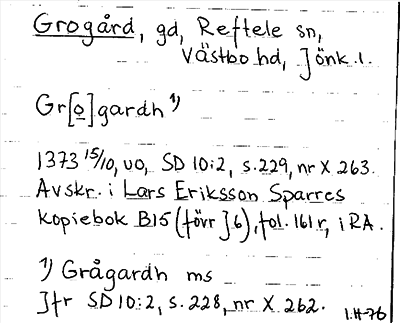 Grogård, gd, Reftele sn,
Västbo hd, Jönk. l.
Gr[o]gardh 1)
1373 15/10, uo, SD 10:2, s. 229, nr X 263.
Avskr. i Lars Eriksson Sparres
kopiebok B15 (förr J 6), fol. 161 r, i RA.
1) Grågardh ms
Jfr SD 10:2, s. 228, nr X 262.
1.H-76